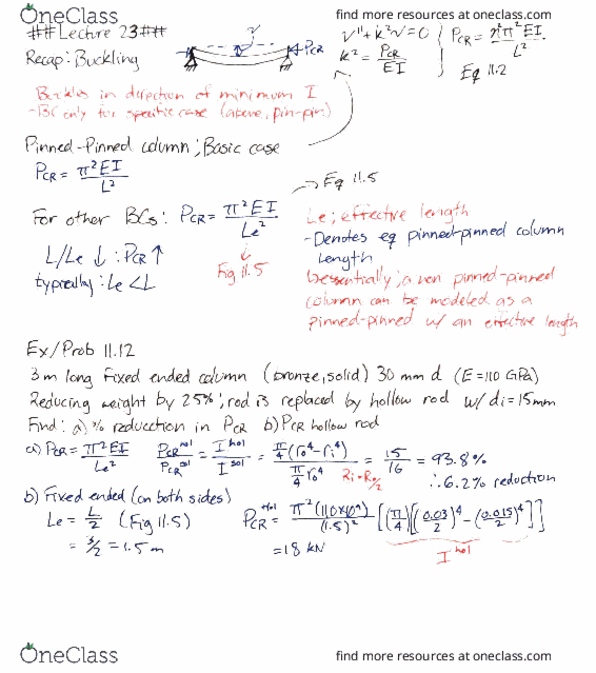 OneClass
find more resources at oneclass.com
##Lecture 23##
Recap: Buckling
PCR
v''+k²v=0
k² = PCR/EI
PCR = n²π²EI/L²
Eq 11.2
Buckles in direction of minimum I
-BC only for specific case (above, pin-pin)
Pinned-Pinned column; Basic case
PCR = π²EI/L²
→ Eq 11.5
For other BCs: PCR = π²EI/Le²
Fig 11.5
L/Le ↓: PCR ↑
typically: Le < L
Le; effective length
-Denotes eq pinned-pinned column
length
essentially; a non pinned-pinned
column can be modeled as a
pinned-pinned w/ an effective length
Ex/Prob 11.12
3m long fixed ended column (bronze, solid) 30 mm d (E=110 GPa)
Reducing weight by 25%; rod is replaced by hollow rod w/ di=15mm
Find: a) % reduction in PCR b) PCR hollow rod
a) PCR = π²EI/Le² PCR^hol/PCR^sol = I^hol/I^sol = π/4(ro⁴-ri⁴)/π/4 ro⁴ = 15/16 = 93.8%
Ri=Ro/2
∴6.2% reduction
b) Fixed ended (on both sides)
Le = L/2 (Fig 11.5)
= 3/2 = 1.5 m
PCR^hol = π²(110x10⁹)/(1.5)² [(π/4)[(0.03/2)⁴ - (0.015/2)⁴]]
I^hol
=18 kN
OneClass
find more resources at oneclass.com